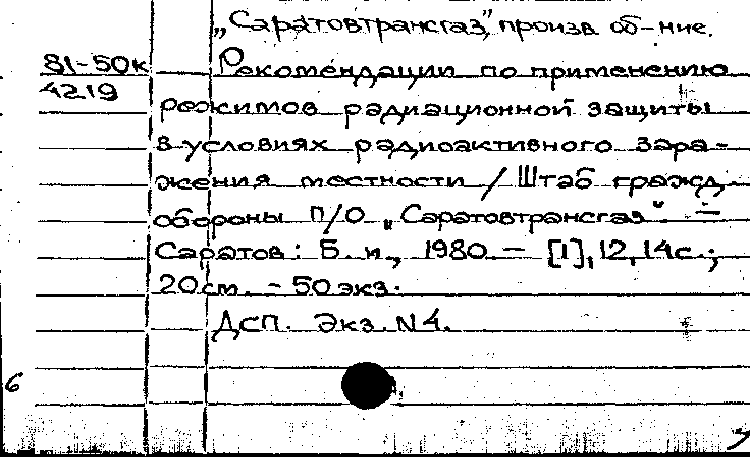 „Саратовтрансгаз", произв. об-ние.
81-50к Рекомендации по применению
4219
режимов радиационной защиты
в условиях радиоактивного зара-
жения местности / Штаб гражд.
обороны П/О „Саратовтрансгаз". –
Саратов: Б. и., 1980. – [1], 12, 14с.;
20см. – 50 экз.
ДСП. Экз. N4.
6